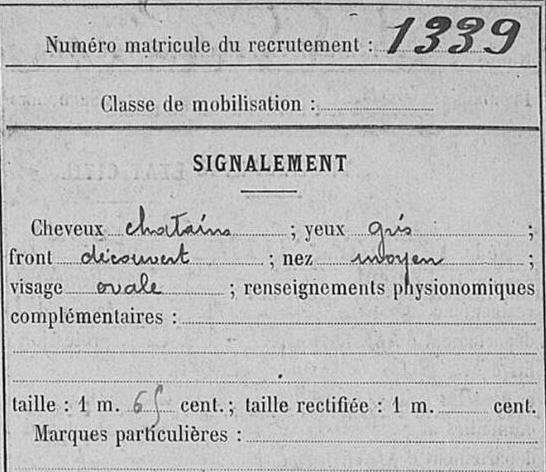 Numéro matricule du recrutement : 1339
Classe de mobilisation :
SIGNALEMENT
Cheveux chatains ; yeux gris ;
front découvert ; nez moyen ;
visage ovale ; renseignements physionomiques
complémentaires :
taille : 1 m. 65 cent. ; taille rectifiée : 1 m. cent.
Marques particulières :